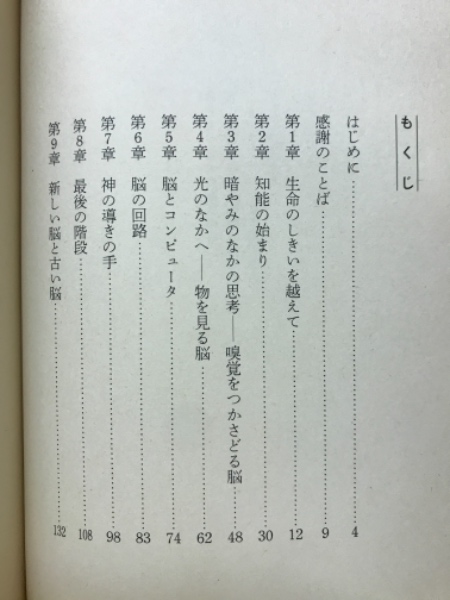 もくじ
はじめに 4
感謝のことば 9
第1章 生命のしきいを越えて 12
第2章 知能の始まり 30
第3章 暗やみのなかの思考——嗅覚をつかさどる脳 48
第4章 光のなかへ——物を見る脳 62
第5章 脳とコンピュータ 74
第6章 脳の回路 83
第7章 神の導きの手 98
第8章 最後の階段 108
第9章 新しい脳と古い脳 132